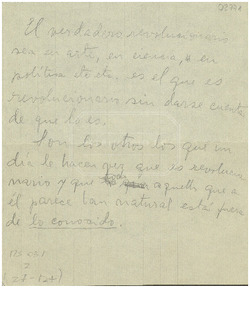 El verdadero revolucionario
sea en arte, en ciencia, o en
política etc etc es el que es
revolucionario sin darse cuenta
de que lo es.
Son los otros los que un
día le hacen ver que es revolucio
nario y que aquello que a
él parece tan natural está fuera
de lo conocido.